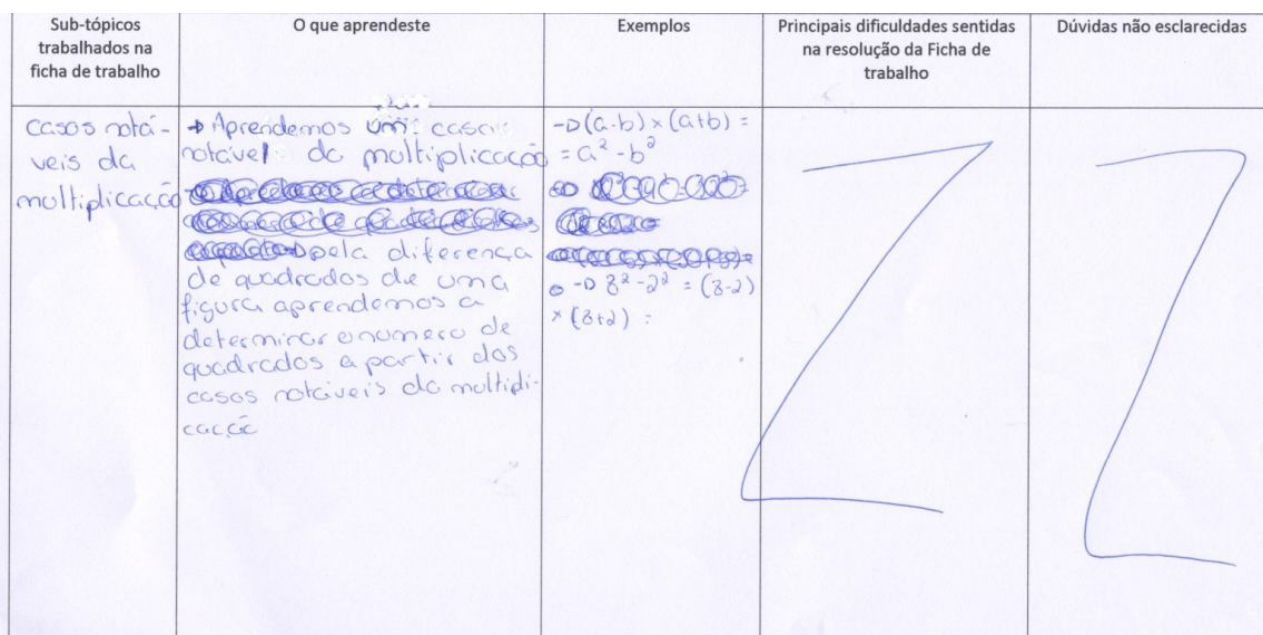 Sub-tópicos
trabalhados na
ficha de trabalho
O que aprendeste
Exemplos
Principais dificuldades sentidas
na resolução da Ficha de
trabalho
Dúvidas não esclarecidas
casos notá-
veis da
multiplicação
→ Aprendemos um caso
notável da multiplicação
→ pela diferença
de quadrados de uma
figura aprendemos a
determinar o numero de
quadrados a partir dos
casos notáveis da multipli-
cação
→ (a-b)×(a+b) =
= a² - b²
→ 3² - 2² = (3-2)
× (3+2) =